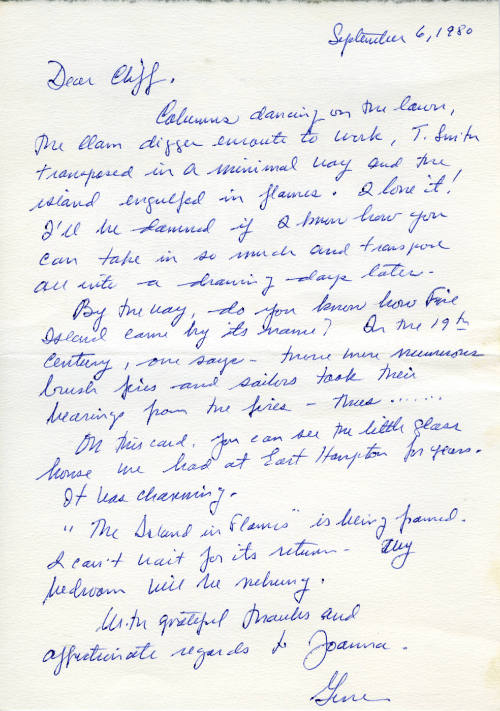 September 6, 1980
Dear Cliff,
Columns dancing on the lawn,
the clam digger enroute to work, T. Smith
transposed in a minimal way and the
island engulfed in flames. I love it!
I'll be damned if I know how you
can take in so much and transpose
all into a drawing days later.
By the way, do you know how Fire
Island came by its name? In the 19th
Century, one says - there were numerous
brush fires and sailors took their
bearings from the fires - thus ......
On this card, you can see the little glass
house we had at East Hampton for years.
It was charming.
"The Island in Flames" is being framed.
I can't wait for its return - My
bedroom will be rehung.
With grateful thanks and
affectionate regards to Joanna.
Gene